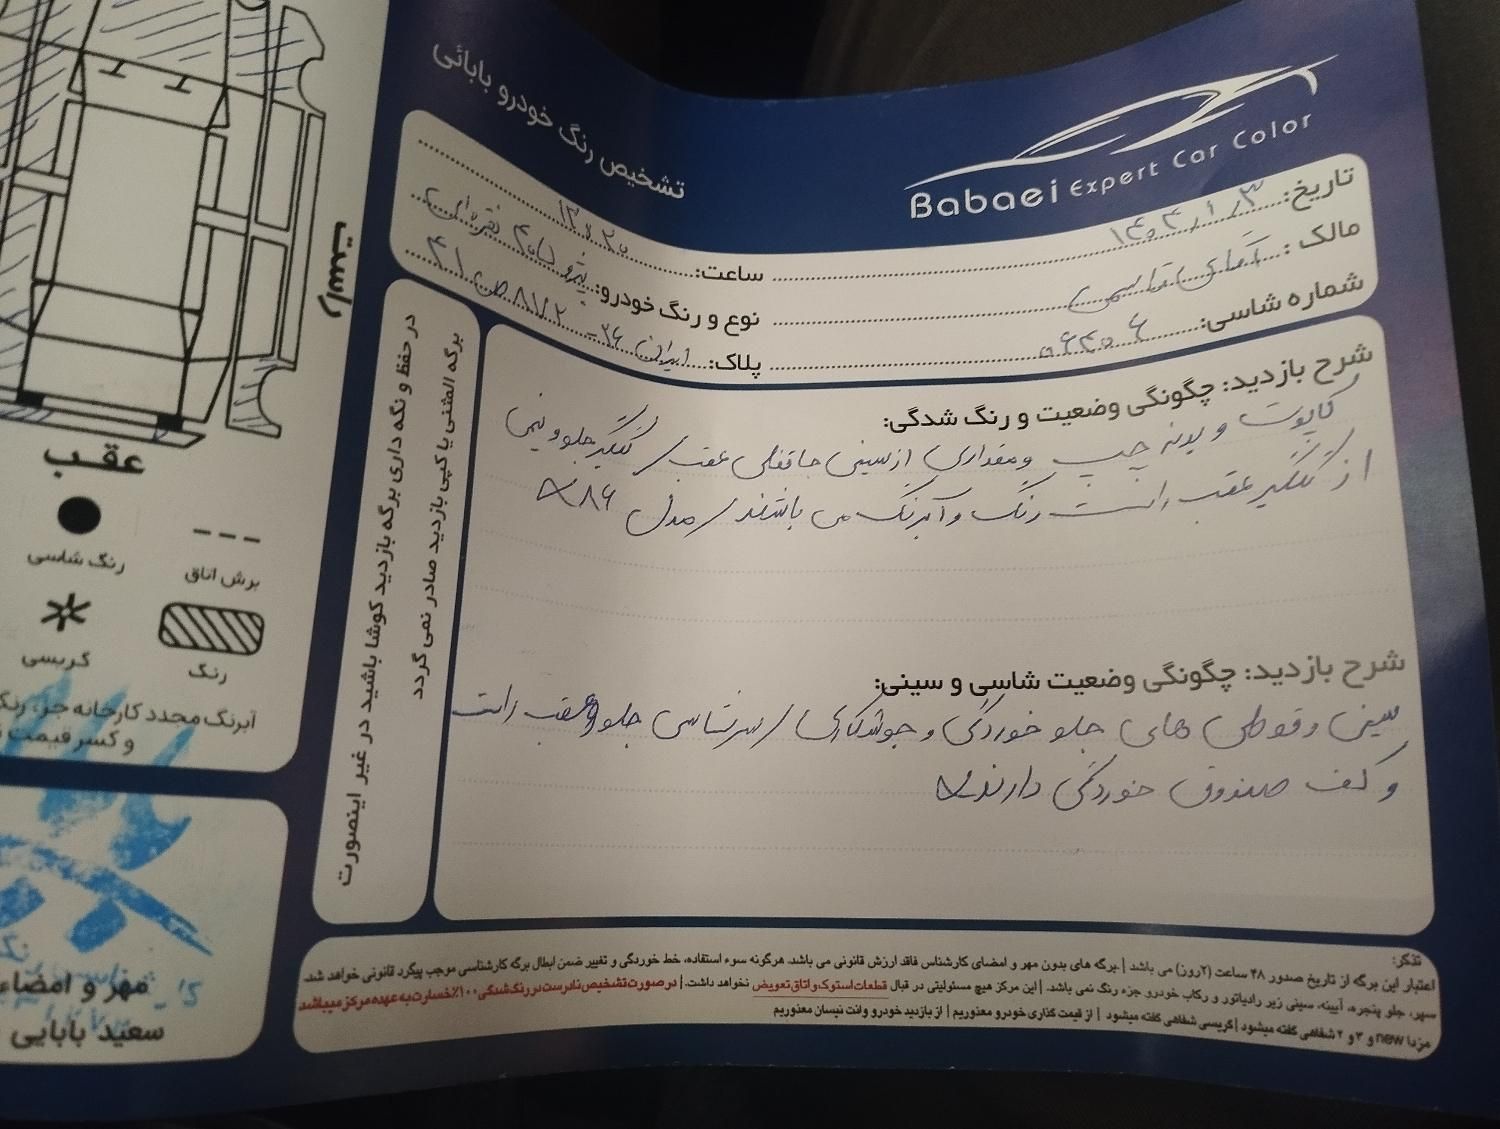 Babaei Expert Car Color
تشخیص رنگ خودرو بابائی
تاریخ: ۱۴۰۴/۱/۳
ساعت:
مالک: آقای قاسمی
نوع و رنگ خودرو: پژو ۴۰۵ نقره‌ای
شماره شاسی:
پلاک: ایران
شرح بازدید: چگونگی وضعیت و رنگ شدگی:
کاپوت و بدنه چپ و مقداری از سینی جاقفلی عقب / گلگیر جلو و نیمی
از گلگیر عقب راست رنگ و آبرنگ می باشند / مدل ۸۶
شرح بازدید: چگونگی وضعیت شاسی و سینی:
سینی و قوطی های جلو خوردگی و جوشکاری / سرشاسی جلو و عقب راست
و کف صندوق خوردگی دارند
برگه المثنی یا کپی بازدید صادر نمی گردد
در حفظ و نگه داری برگه بازدید کوشا باشید در غیر اینصورت
راست
عقب
رنگ شاسی
برش اتاق
گریسی
رنگ
آبرنگ مجدد کارخانه جز، رنگ
و کسر قیمت
مهر و امضاء
سعید بابایی
تذکر:
اعتبار این برگه از تاریخ صدور ۴۸ ساعت (۲روز) می باشد | برگه های بدون مهر و امضای کارشناس فاقد ارزش قانونی می باشد. هرگونه سوء استفاده، خط خوردگی و تغییر ضمن ابطال برگه کارشناسی موجب پیگرد قانونی خواهد شد.
سپر، جلو پنجره، آیینه، سینی زیر رادیاتور و رکاب خودرو جزء رنگ نمی باشد. | این مرکز هیچ مسئولیتی در قبال قطعات استوک و اتاق تعویض نخواهد داشت. | در صورت تشخیص نادرست در رنگ شدگی ۱۰۰٪ خسارت به عهده مرکز میباشد
مزدا new و ۳ و ۲ شفاهی گفته میشود | گریسی شفاهی گفته میشود | از قیمت گذاری خودرو معذوریم | از بازدید خودرو وانت نیسان معذوریم